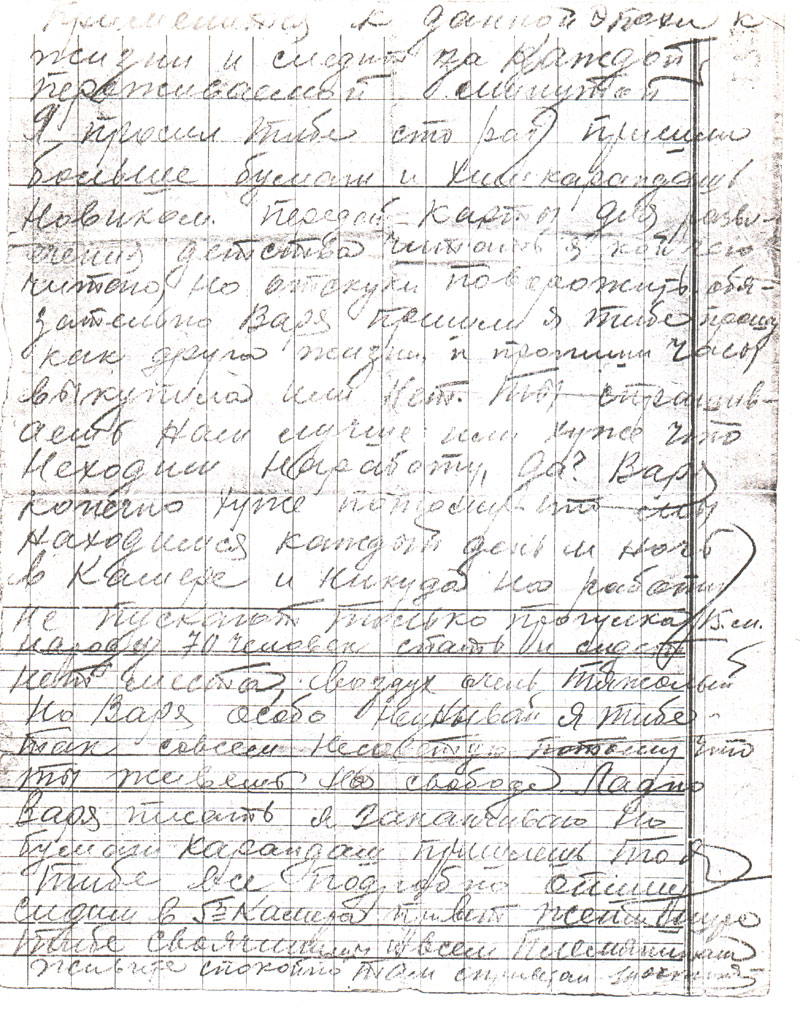 применится к данной эпохи к
жизни и следить за каждой
переживаемой минутой
Я просил тибе сто раз пришли
больше бумаги и хим карандаш
Новиком. передай карты для развле-
чения детства читать я кой чего
читаю, но отскуки поворожить обя-
зательно Варя пришли я тибе прошу
как друга жизни, и пропиши часы
выкупила или нет. Ты спрашив-
аешь Нам лучше или хуже что
Неходим Наработу, да? Варя
конечно хуже потому-что мы
находимся каждый день и ночь
в Камере и Никуда на работу
не пускают только прогулка 15 м.
народу 70 человек спать и сидеть
нет места, воздух очень тяжолый
Но Варя особо Неунывай я тибе
так совсем Несоветую потому что
ты живешь на свободе Ладно
Варя писать я Заканчиваю Но
бумаги карандаш пришлешь то я
Тибе все подробно опишу
сидим в Камера привет
Тибе и всем Племяникам
живите спокойно